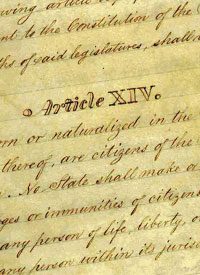 wing article
nt to the Constitution of the
ths of said legislatures, shall
Article XIV.
rn or naturalized in the
thereof, are citizens of the
. No State shall make or
ges or immunities of citizens
any person of life, liberty, o
any person within its jurisd